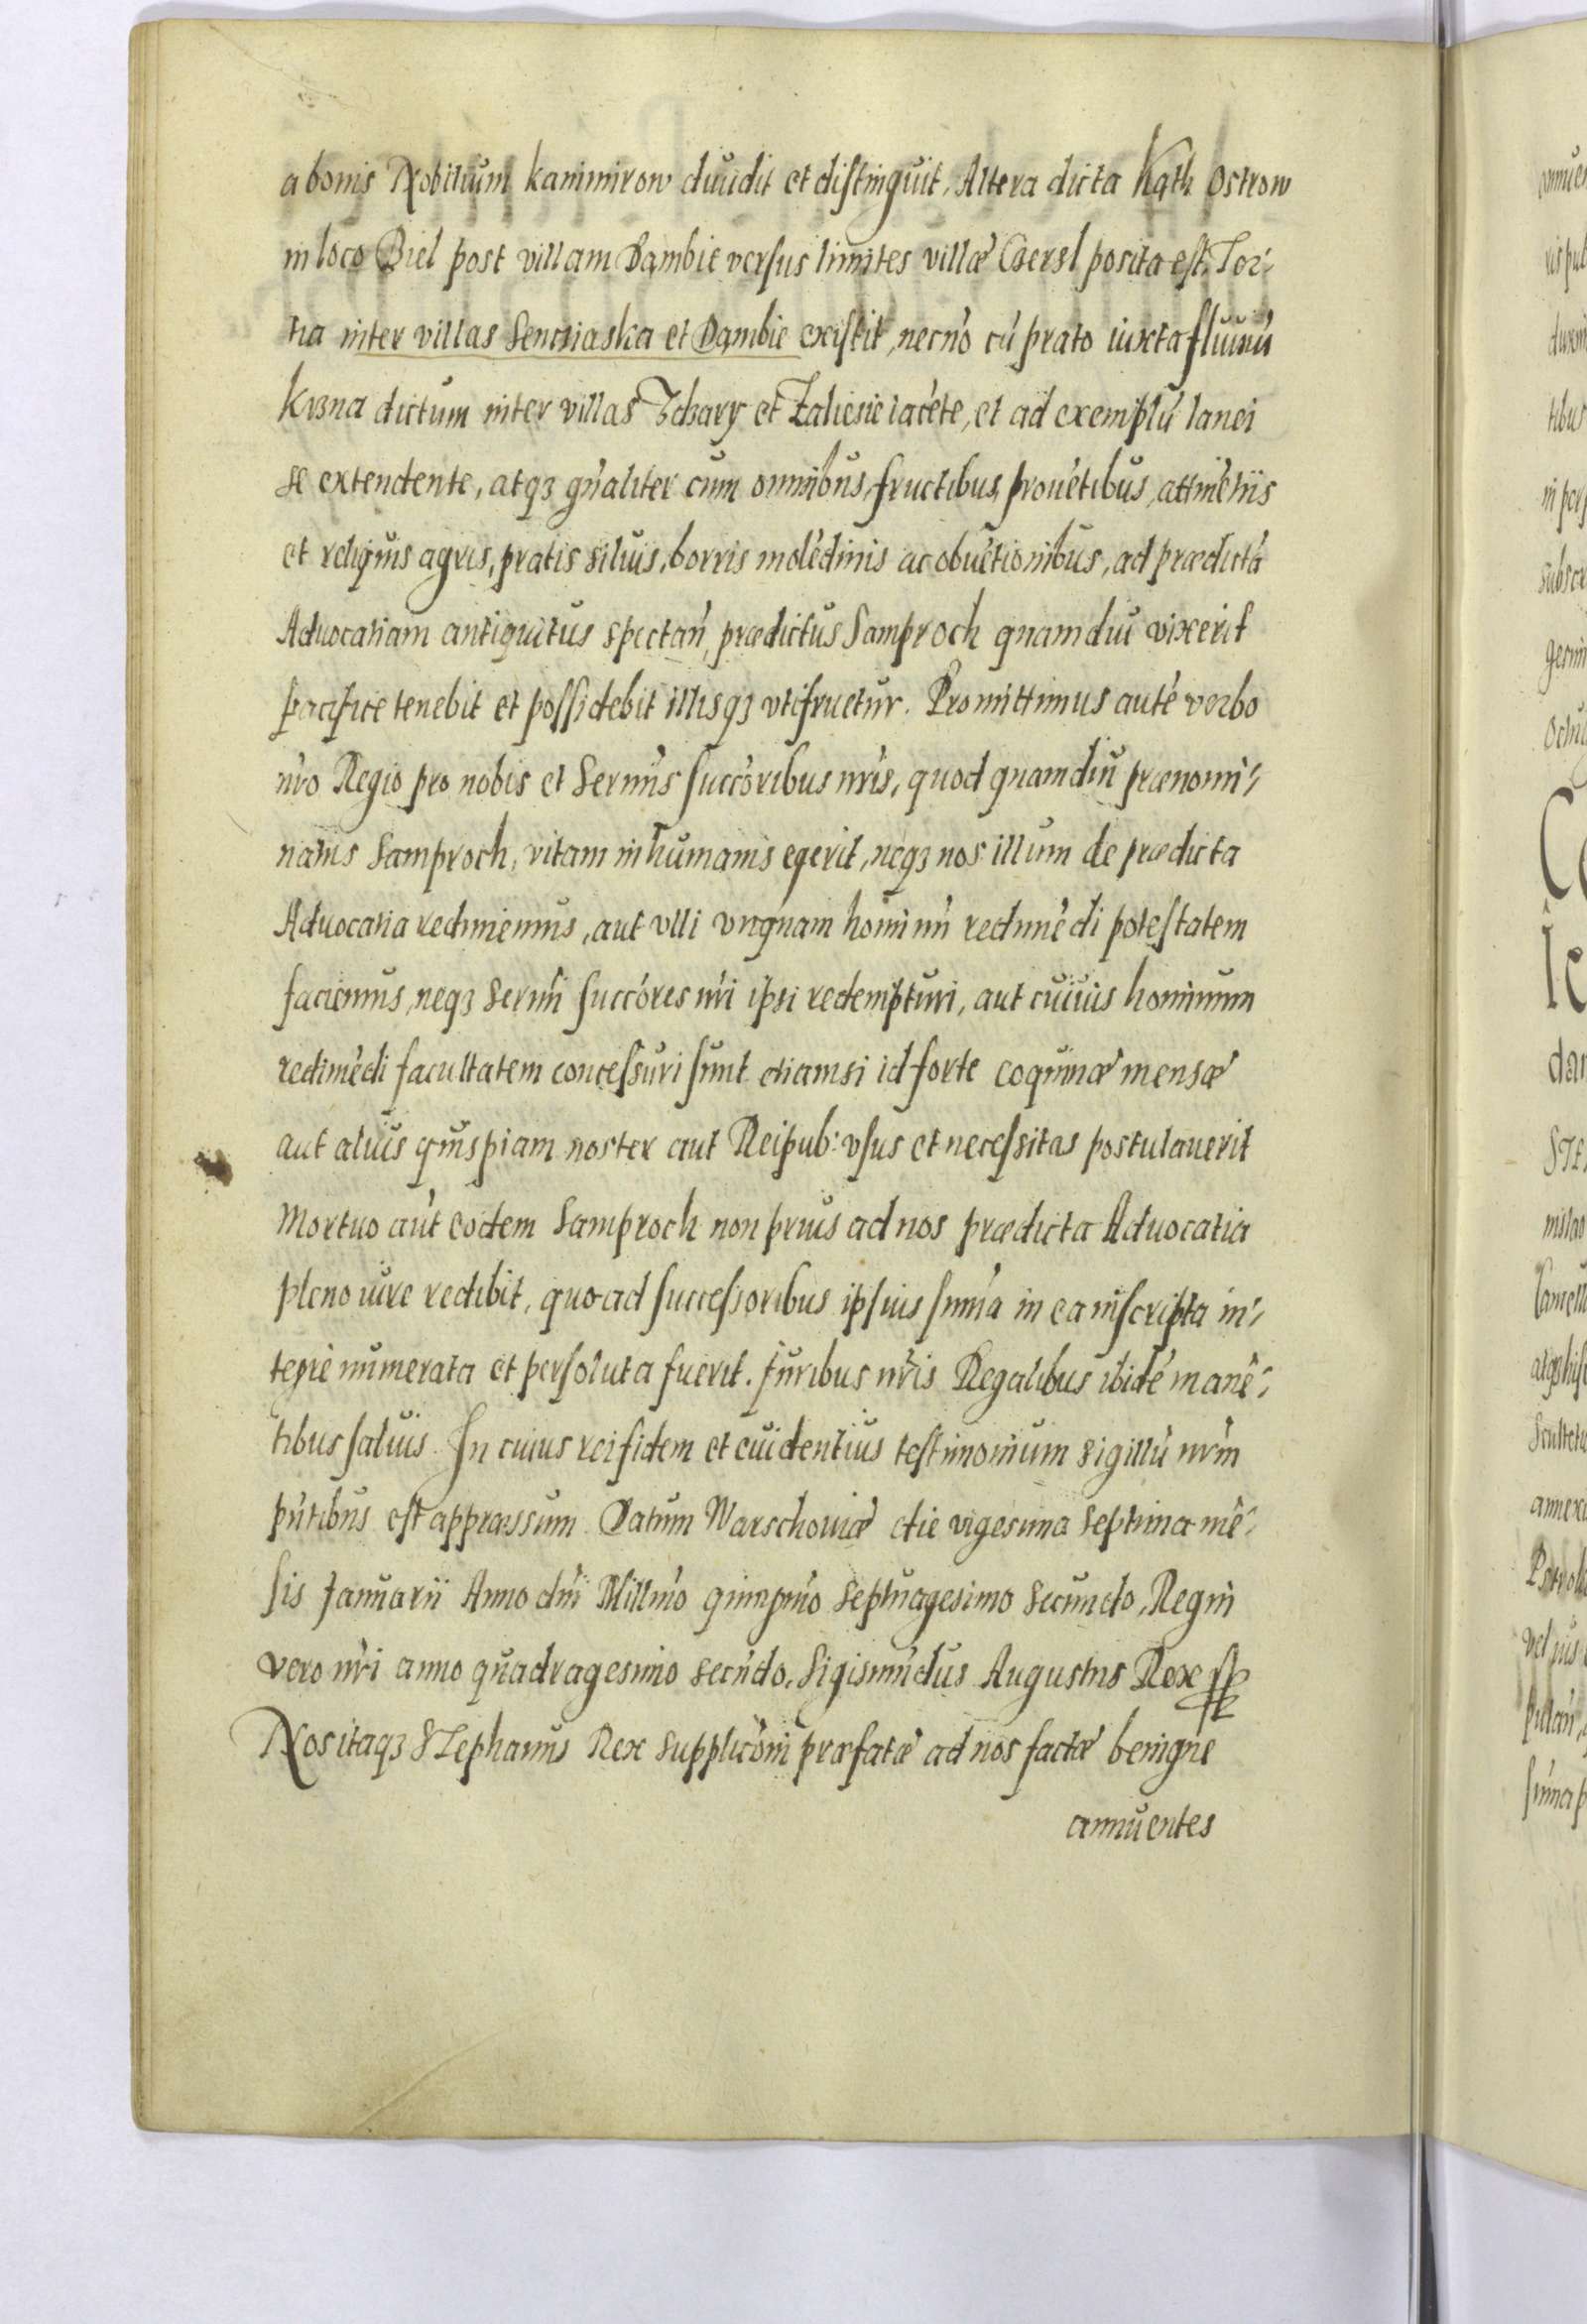 a bonis Nobilium kanimirow diuidit et distinguit, Altera dicta Kąth Ostrow
in loco Biel post villam Dąmbie versus limites villæ Czersl posita est, Ter-
tia inter villas Sencziaska et Dąmbie existit, necnō cū prato iuxta fluuiū
Krzna dictum inter villas Zchary et Zaliesie iacēte, et ad exemplū lanei
se extendente, atqȝ gn̄aliter cum omnibus, fructibus, prouētibus, attinētiis
et reliquis agris, pratis siluis, borris molēdinis ac obuētionibus, ad prædictā
Aduocatiam antiquitus spectan̄, prædictus Samproch quamdiu vixerit
pacifice tenebit et possidebit illisqȝ vtifruetur. Promittimus autē verbo
nr̄o Regio pro nobis et Sermīs succōribus nr̄is, quod quamdiu prænomi-
natus Samproch, vitam in humanis egerit, neqȝ nos illum de prædicta
Aduocatia redimemus, aut vlli vnquam hominū redimēdi potestatem
faciemus, neqȝ Sermī succōres nr̄i ipsi redempturi, aut cuiuis hominum
redimēdi facultatem concessuri sunt etiamsi id forte coquinæ mensæ
aut alius quispiam noster aut Reipub: vsus et necessitas postulauerit
Mortuo aūt eodem Samproch non prius ad nos prædicta Aduocatia
pleno iure redibit, quoad successoribus ipsius sum̄a in ea inscripta in-
tegrè numerata et persoluta fuerit. Juribus nr̄is Regalibus ibidē manē-
tibus saluis. In cuius rei fidem et euidentius testimonium sigillū nr̄m
pn̄tibus est appræssum. Datum Warschouiæ die vigesima septima mē-
sis Januarii Anno dn̄i Millmō quingmō septuagesimo secundo, Regni
vero nr̄i anno quadragesimo secūdo. Sigismūdus Augustus Rex
Nos itaqȝ STephanus Rex supplicōni præfatæ ad nos factæ benigne
annuentes